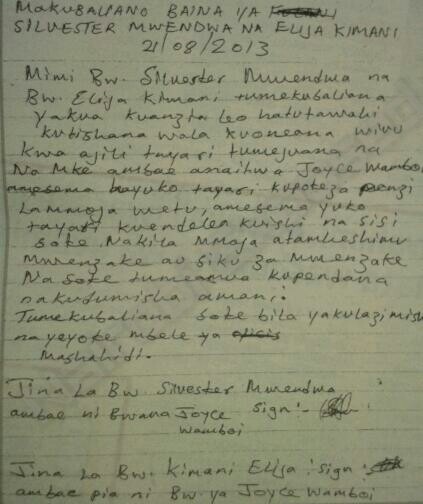 MAKUBALIANO BAINA YA
SILVESTER MWENDWA NA ELIJA KIMANI
21/08/2013
Mimi Bw. Silvester Mwendwa na
Bw. Elija Kimani tumekubaliana
yakua kuanzia leo hatutawahi
kutishana wala kuoneana wivu
kwa ajili tayari tumejuana na
Na Mke ambae anaitwa Joyce Wamboi
amesema hayuko tayari kupoteza penzi
La mmoja wetu, amesema yuko
tayari kuendelea kuishi na sisi
sote. Nakila Mmoja atamheshimu
Mwenzake au siku za Mwenzake
Na Sote tumeamua kupendana
nakudumisha amani.
Tumekubaliana Sote bila yakulazimish
na yeyote mbele ya
Mashahidi.
Jina La Bw Silvester Mwendwa
ambae ni Bwana Joyce Sign:-
Wamboi
Jina La Bw. Kimani Elija: sign:
ambae pia ni Bw ya Joyce Wamboi